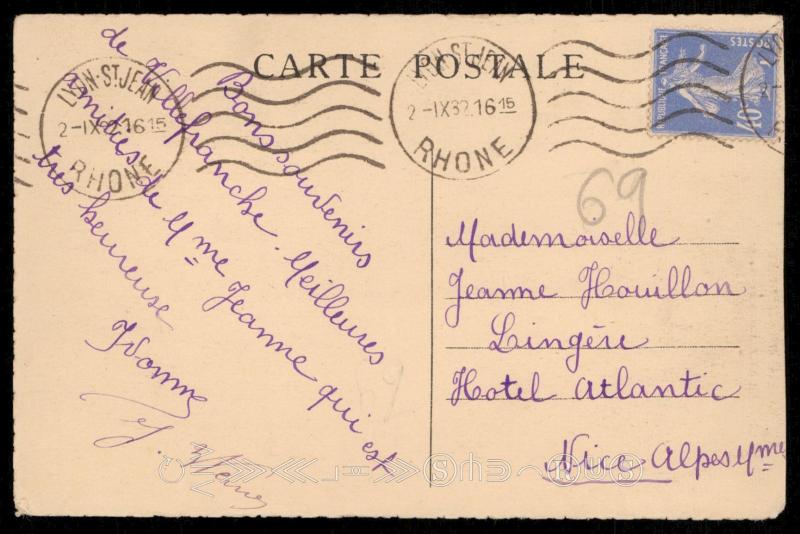 CARTE POSTALE
LYON-ST JEAN
2-IX 32.16 15
RHONE
LYON-ST JEAN
2-IX 32.16 15
RHONE
POSTES
REPUBLIQUE FRANÇAISE
40c
69
Bons souvenirs
de Villefranche. Meilleures
amitiés de Mme Jeanne qui est
très heureuse
Yvonne
J.
Mademoiselle
Jeanne Houillon
Lingère
Hotel Atlantic
Nice Alpes Mme